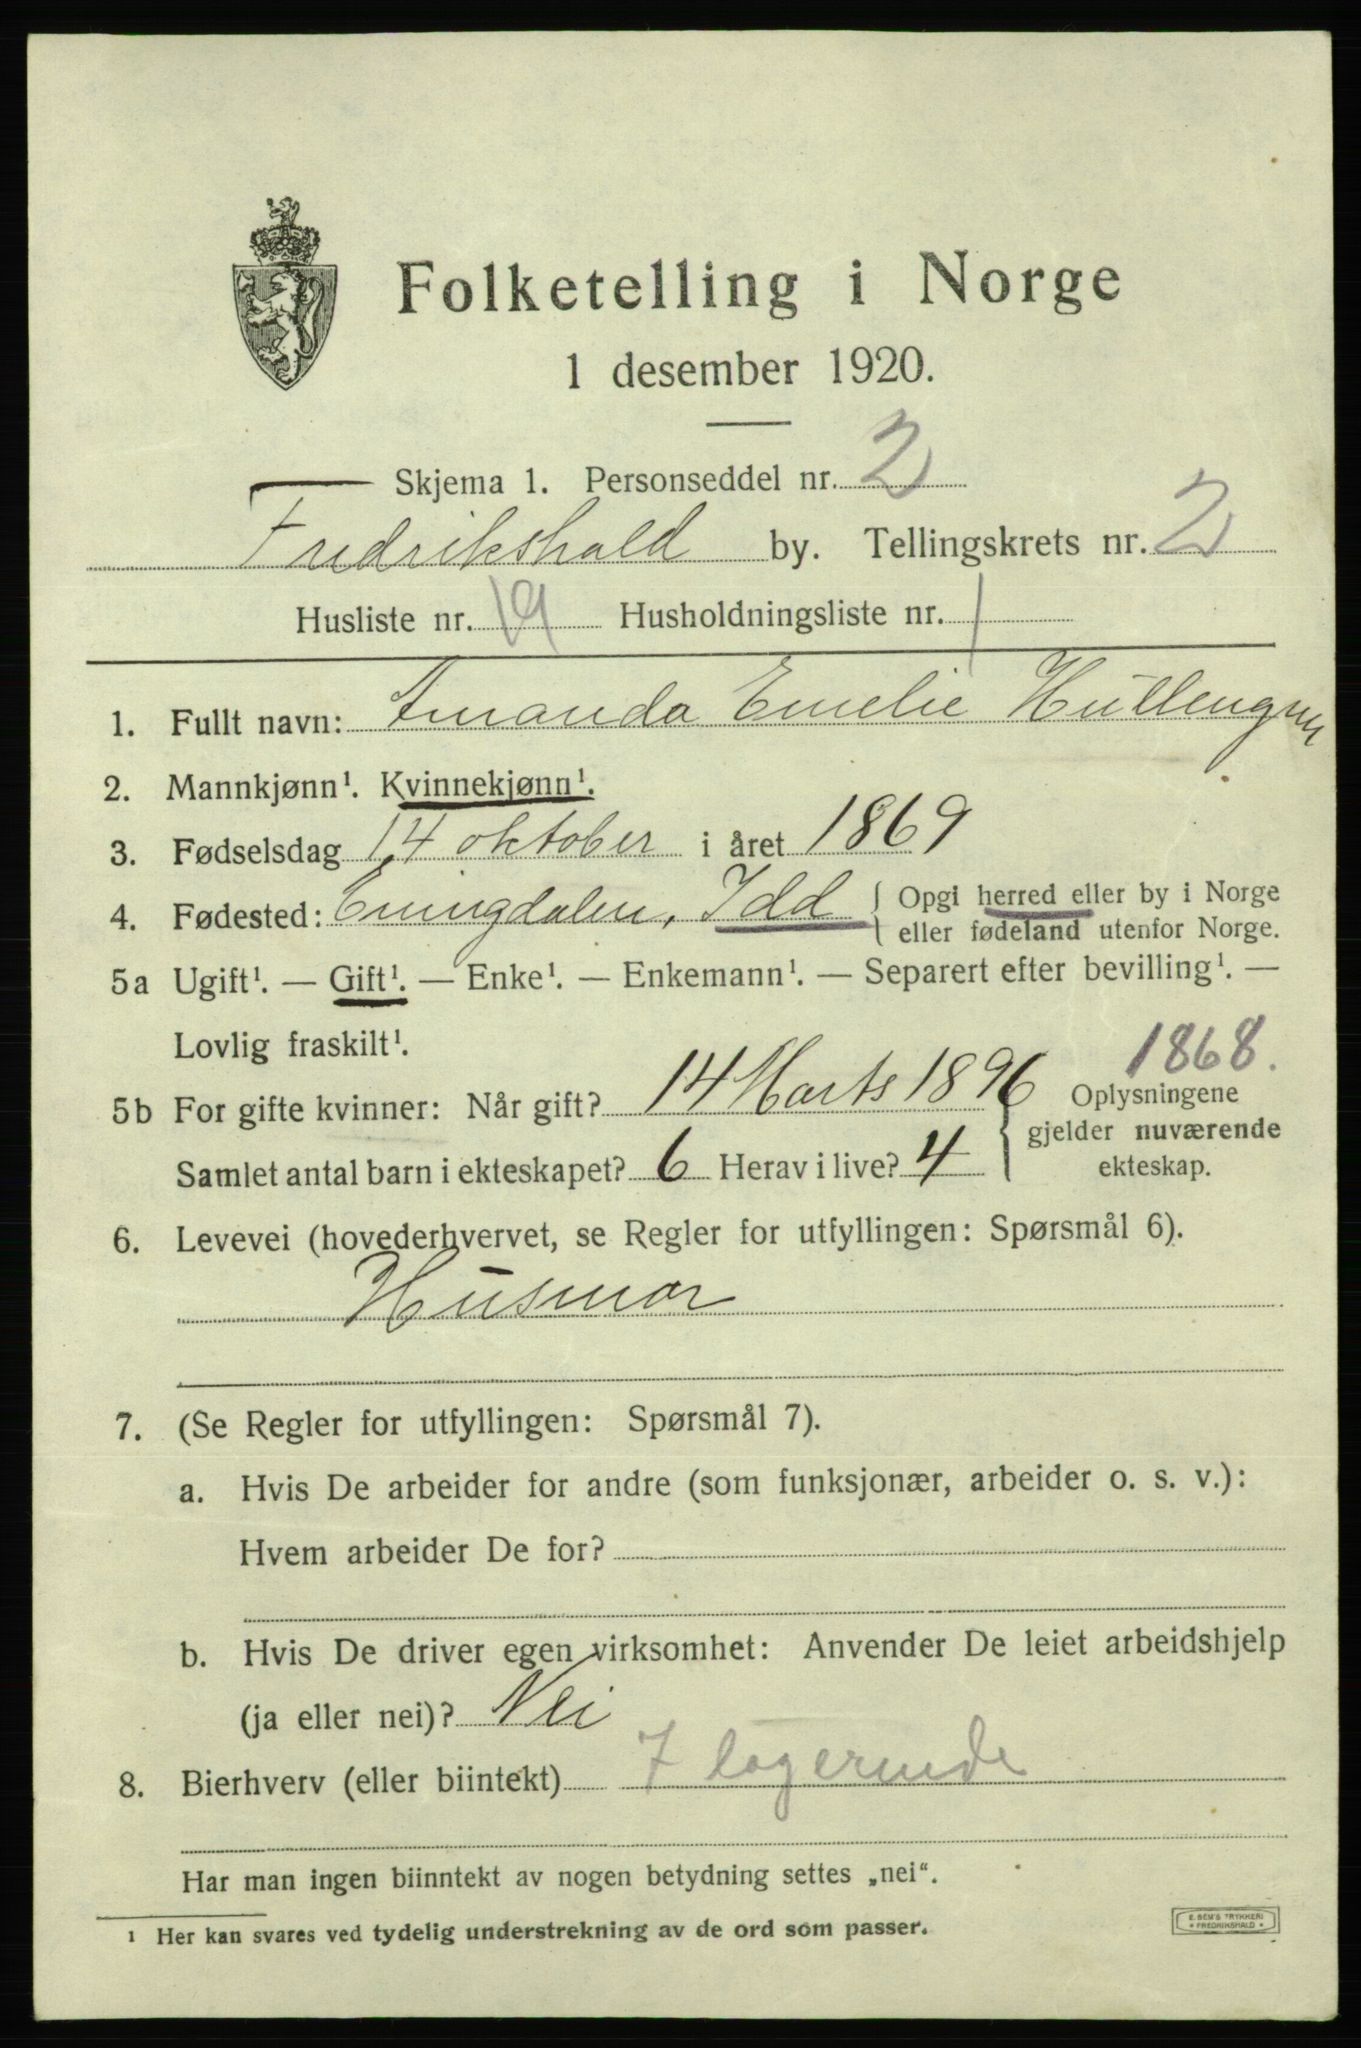 Folketelling i Norge
1 desember 1920.
Skjema 1. Personseddel nr. 2
Fredrikshald by. Tellingskrets nr. 2
Husliste nr. 19 Husholdningsliste nr. 1
1. Fullt navn: Amanda Emelie
2. Mannkjønn¹. Kvinnekjønn¹.
3. Fødselsdag 14 oktober i året 1869
4. Fødested: Enningdalen, Idd { Opgi herred eller by i Norge
eller fødeland utenfor Norge.
5a Ugift¹. — Gift¹. — Enke¹. — Enkemann¹. — Separert efter bevilling¹. —
Lovlig fraskilt¹.
1868.
5b For gifte kvinner: Når gift? 14 Marts 1896 { Oplysningene
gjelder nuværende
Samlet antal barn i ekteskapet? 6 Herav i live? 4
ekteskap.
6. Levevei (hovederhvervet, se Regler for utfyllingen: Spørsmål 6).
Husmor
7. (Se Regler for utfyllingen: Spørsmål 7).
a. Hvis De arbeider for andre (som funksjonær, arbeider o. s. v.):
Hvem arbeider De for?
b. Hvis De driver egen virksomhet: Anvender De leiet arbeidshjelp
(ja eller nei)? Nei
8. Bierhverv (eller biintekt) 7 logerende
Har man ingen biinntekt av nogen betydning settes „nei“.
¹ Her kan svares ved tydelig understrekning av de ord som passer.
E. SEM'S TRYKKERI
* FREDRIKSHALD *